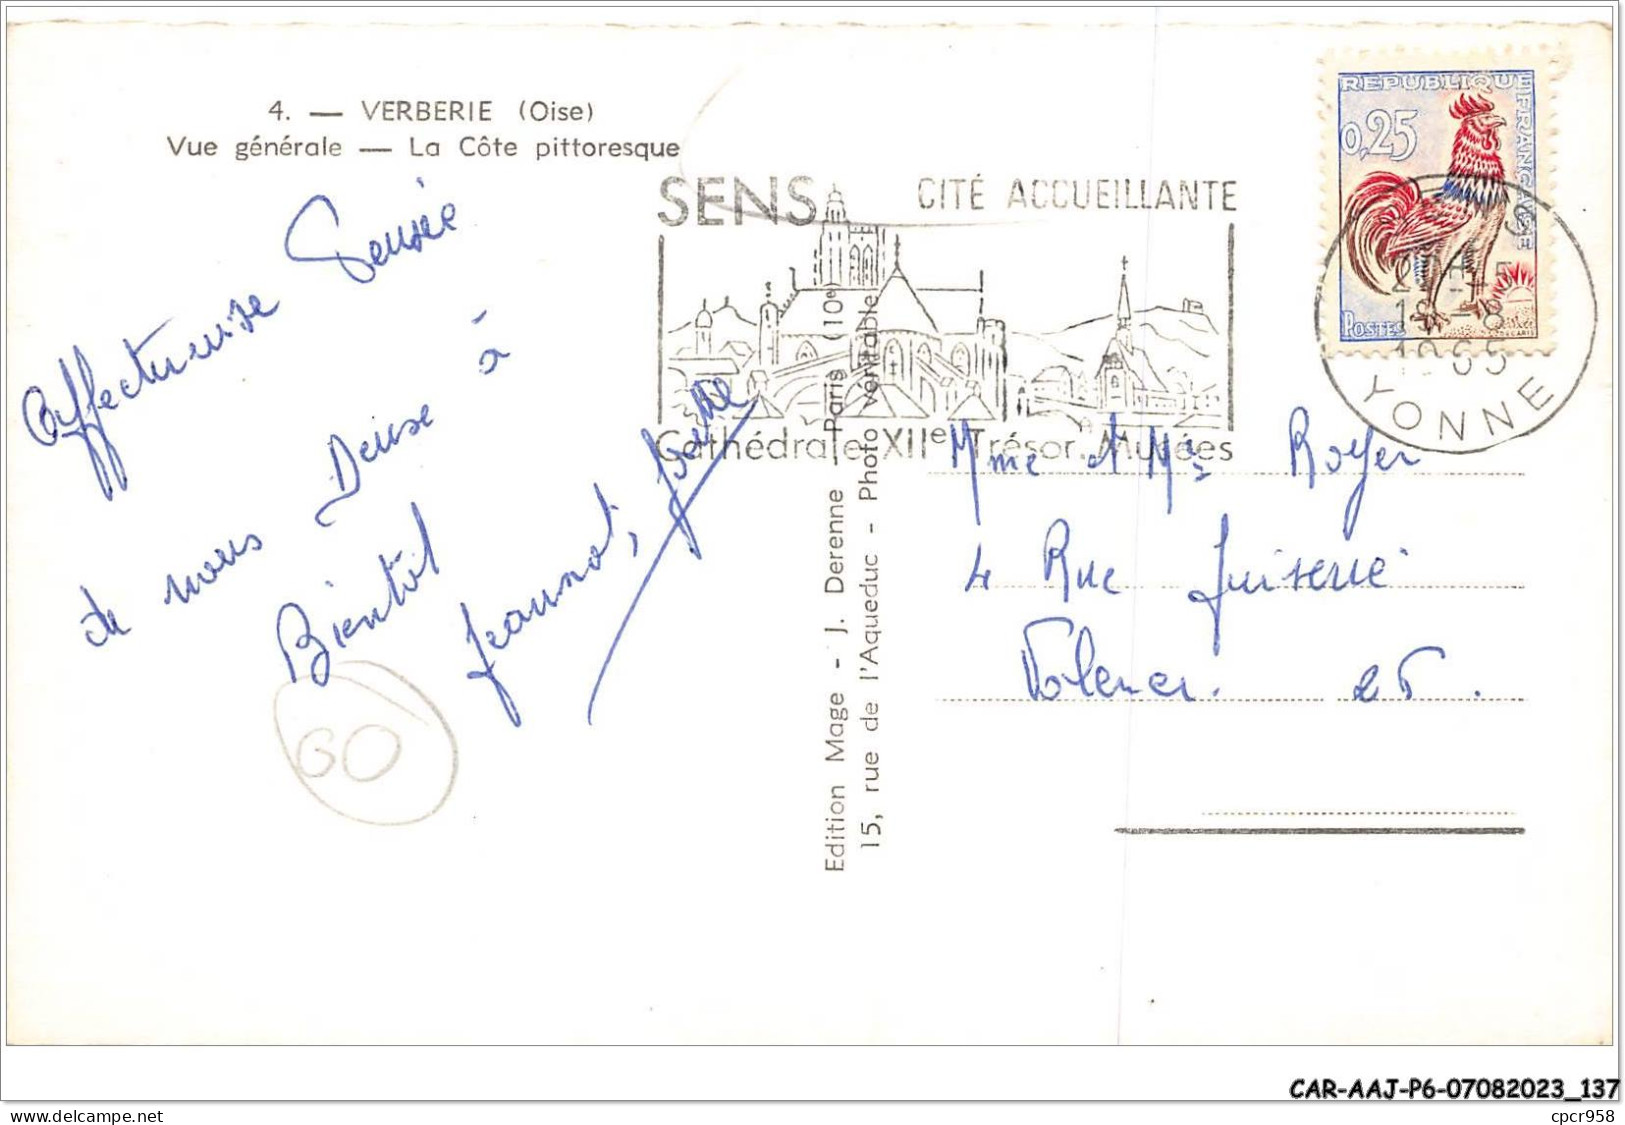 4. — VERBERIE (Oise)
Vue générale — La Côte pittoresque
SENS CITÉ ACCUEILLANTE
Cathédrale XIIe Trésor. Musées
REPUBLIQUE FRANÇAISE
0,25
POSTES
1965
YONNE
Affectueuse Pensée
de nous Deux à
Bientôt
Jeannot,
Edition Mage - J. Derenne - Paris (10e)
15, rue de l'Aqueduc - Photo véritable
Mme et Mr Royer
4 Rue
GO
CAR-AAJ-P6-07082023_137
delcampe.net
cpcr958